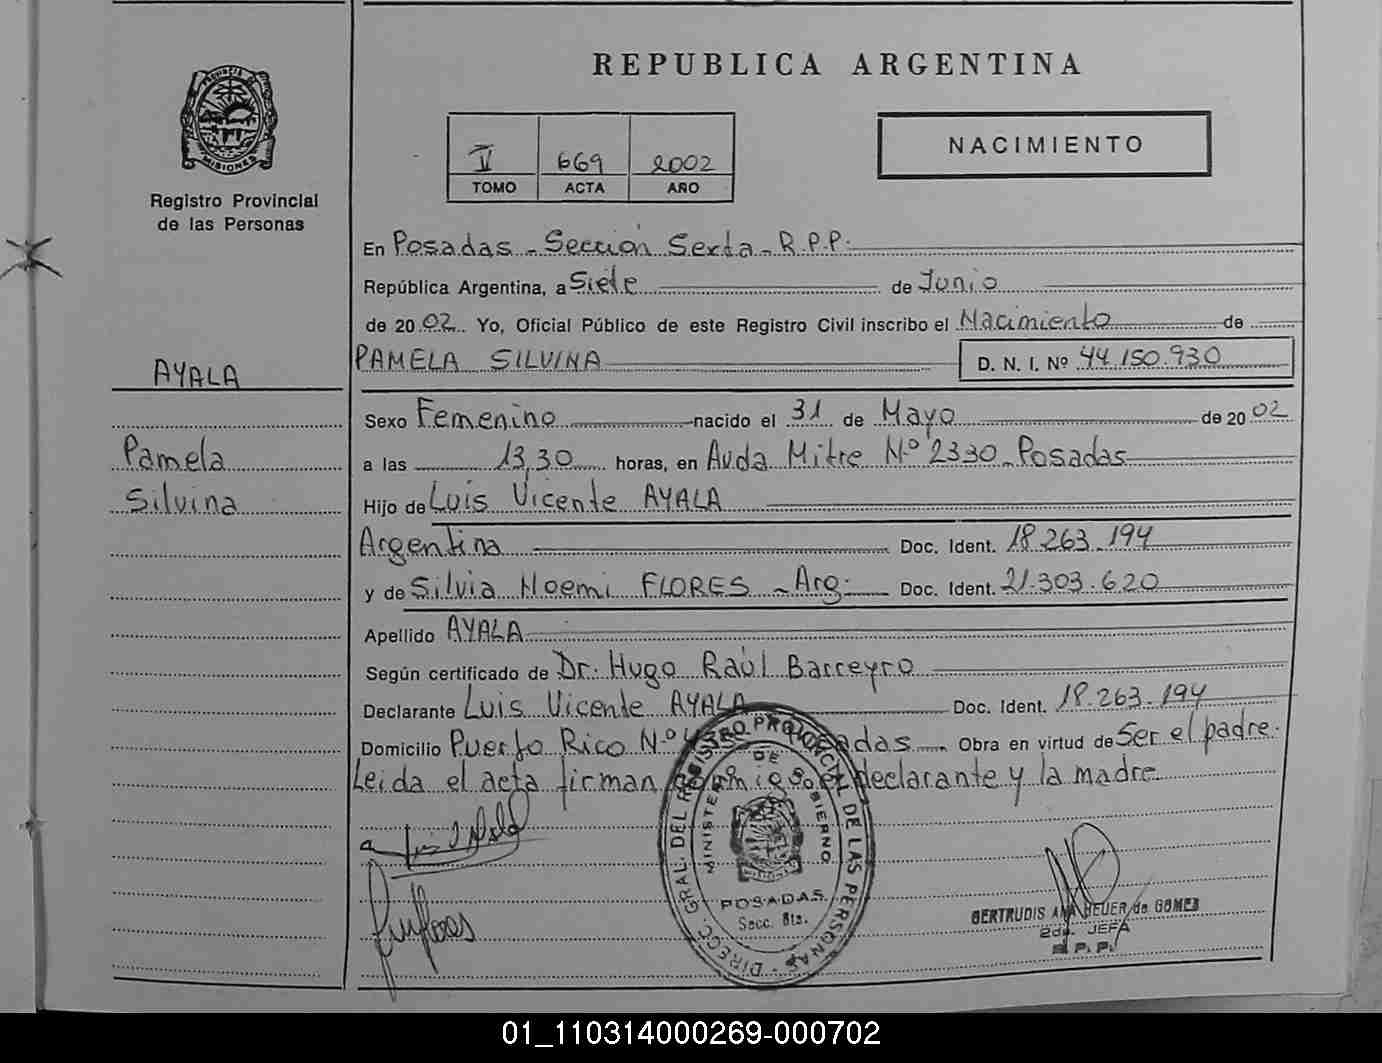 REPUBLICA ARGENTINA
PROVINCIA DE
MISIONES
Registro Provincial
de las Personas
II 669 2002
TOMO ACTA AÑO
NACIMIENTO
En Posadas - Sección Sexta - R.P.P.
República Argentina, a Siete de Junio
de 2002 Yo, Oficial Público de este Registro Civil inscribo el Nacimiento de
AYALA
PAMELA SILVINA D. N. I. Nº 44.150.930
Sexo Femenino nacido el 31 de Mayo de 2002
Pamela
a las 13,30 horas, en Avda Mitre Nº 2330 - Posadas
Silvina
Hijo de Luis Vicente AYALA
Argentina Doc. Ident. 18.263.194
y de Silvia Noemi FLORES - Arg. Doc. Ident. 21.303.620
Apellido AYALA
Según certificado de Dr. Hugo Raúl Barreyro
Declarante Luis Vicente AYALA Doc. Ident. 18.263.194
Domicilio Puerto Rico Nº Obra en virtud de Ser el padre.
Leida el acta firman conmigo el declarante y la madre
DIREC. GRAL. DEL REGISTRO PROVINCIAL DE LAS PERSONAS
MINISTERIO DE GOBIERNO
POSADAS
Secc. 6ta.
GERTRUDIS ANA HEUER de GOMEZ
2da. JEFA
R. P. P.
01_110314000269-000702